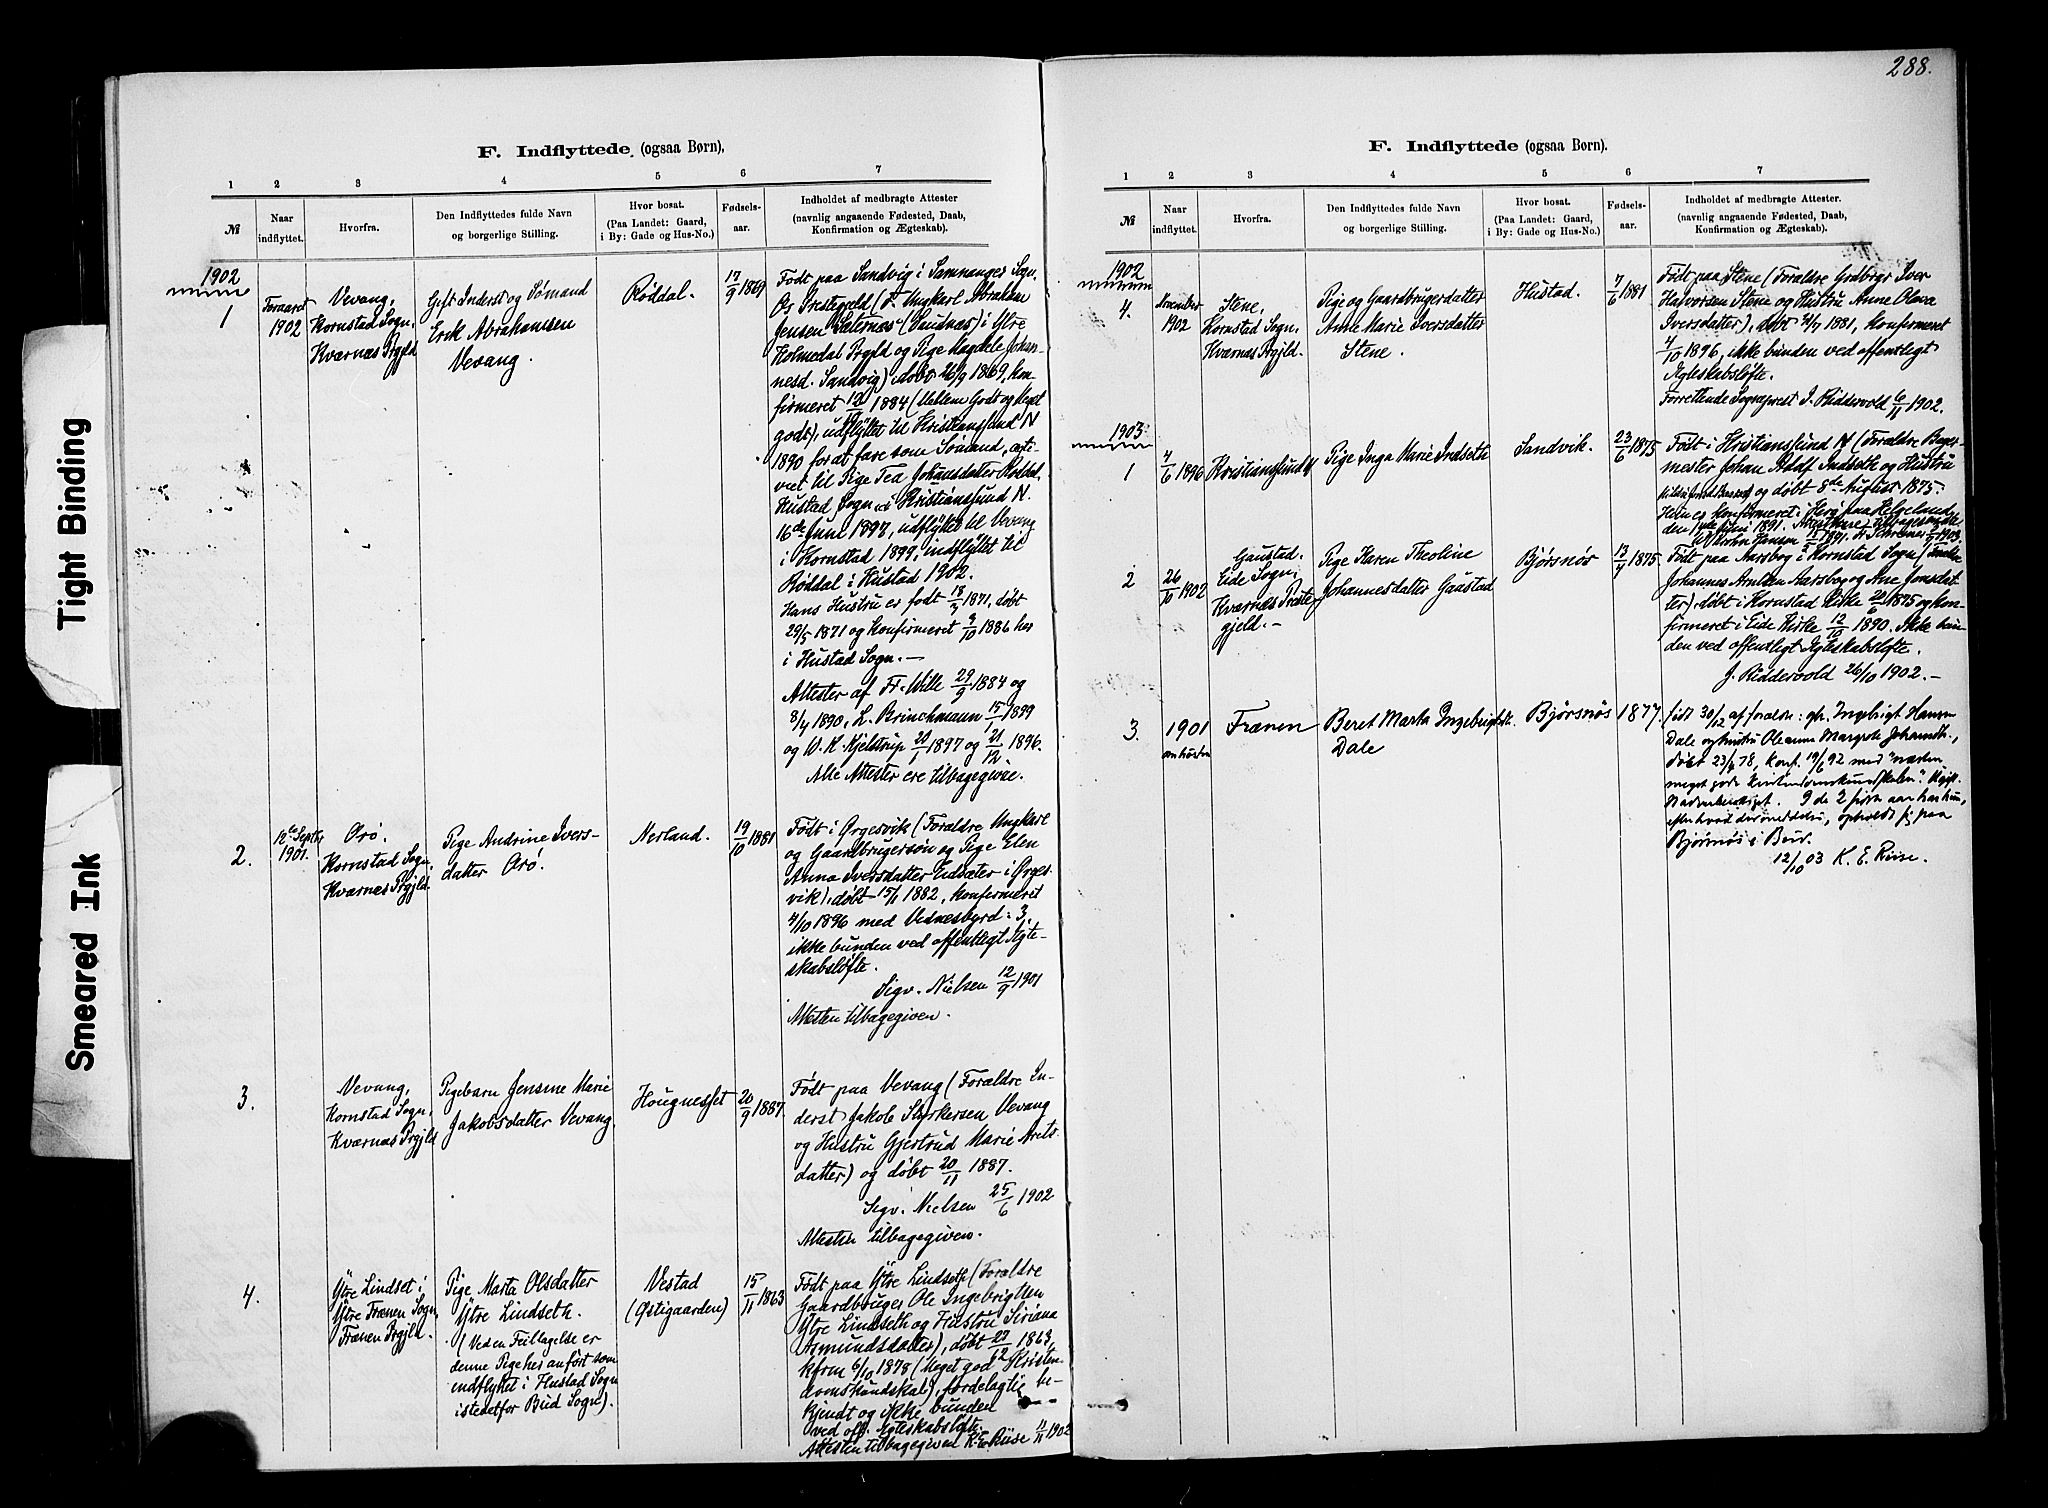 Tight Binding
Smeared Ink
F. Indflyttede (ogsaa Børn).
1 2 3 4 5 6 7
№
Naar
indflyttet.
Hvorfra.
Den Indflyttedes fulde Navn
og borgerlige Stilling.
Hvor bosat.
(Paa Landet: Gaard,
i By: Gade og Hus-No.)
Fødsels-
aar.
Indholdet af medbragte Attester
(navnlig angaaende Fødested, Daab,
Konfirmation og Ægteskab).
1902
1
Foraaret
1902
Vevang,
Kornstad Sogn,
Kværnæs Prgjld
Gift Inderst og Sømand
Erik Abrahamsen
Vevang.
Røddal.
17/9 1869
Født paa Sandvig i Samnanger Sogn,
Os Præstegjeld (F. Ungkarl Abraham
Jensen Sæternæs (Sausnæs) i Ytre
Holmedal Prgjld og Pige Magdele Johan-
nesd. Sandvig) døbt 26/9 1869, kon-
firmeret 12/10 1884 (Mellem Godt og Meget
godt), udflyttet til Kristiansund N
1890 for at fare som Sømand, ægte-
viet til Pige Tea Johansdatter Røddal,
Hustad Sogn i Kristiansund N.
16de Juni 1897, udflyttet til Vevang
i Kornstad 1899, indflyttet til
Røddal i Hustad 1902.
Hans Hustru er født 18/3 1871, døbt
29/5 1871 og konfirmeret 3/10 1886 her
i Hustad Sogn.—
Attester af Fr. Wille 29/9 1884 og
8/4 1890, L. Brinchmann 15/1 1899
og W. K. Hjelstrup 20/1 1897 og 21/12 1896.
Alle Attester ere tilbagegivne.
2.
12te Septbr
1901.
Orø.
Kornstad Sogn,
Kværnæs Prgjld.
Pige Andrine Ivers-
datter Orø.
Nerland.
19/10 1881
Født i Ørgesvik (Forældre Ungkarl
og Gaardbrugersøn og Pige Elen
Anna Iversdatter Eidsæter i Ørges-
vik), døbt 15/1 1882, konfirmeret
4/10 1896 med Vidnesbyrd: 3,
ikke bunden ved offentligt Ægte-
skabsløfte.
Sigv. Nielsen 12/9 1901
Attesten tilbagegiven.
3.
Vevang,
Kornstad Sogn,
Kværnæs Prgjld
Pigebarn Jensine Marie
Jakobsdatter Vevang.
Hougnesset
20/9 1887.
Født paa Vevang (Forældre In-
derst Jakob Styrkersen Vevang
og Hustru Gjertrud Marie Arets-
datter) og døbt 20/11 1887.
Sigv. Nielsen 25/6 1902
Attesten tilbagegiven.
4.
Ytre Lindset i
Ytre Frænen Sogn,
Frænen Prgjld.
Pige Marta Olsdatter
Ytre Lindseth.
(Ved en Feiltagelse er
denne Pige her anført som
indflyttet i Hustad Sogn
istedetfor Bud Sogn).
Vestad
(Østigaarden)
15/11 1863
Født paa Ytre Lindseth (Forældre
Gaardbruger Ole Ingebrigtsen
Ytre Lindseth og Hustru Siriana
Asmundsdatter), døbt 27/12 1863,
kfrm 6/10 1878 (Meget god Kristen-
domskundskab), fordelagtig be-
kjendt og ikke bunden
ved off. Ægteskabsløfte.
Attesten tilbagegiven K. E. Riise 11/11 1902
288.
F. Indflyttede (ogsaa Børn).
1 2 3 4 5 6 7
№
Naar
indflyttet.
Hvorfra.
Den Indflyttedes fulde Navn
og borgerlige Stilling.
Hvor bosat.
(Paa Landet: Gaard,
i By: Gade og Hus-No.)
Fødsels-
aar.
Indholdet af medbragte Attester.
(navnlig angaaende Fødested, Daab,
Konfirmation og Ægteskab).
1902
4.
November
1902
Stene,
Kornstad Sogn,
Kværnæs Prgjld.
Pige og Gaardbrugerdatter
Anne Marie Iversdatter
Stene.
Hustad.
7/6 1881
Født paa Stene (Forældre Grdbrgr Iver
Halvorsen Stene og Hustru Anne Olava
Iversdatter), døbt 21/7 1881, konfirmeret
4/10 1896, ikke bunden ved offentligt
Ægteskabsløfte.
Forrettende Sogneprest J. Riddervold 6/11 1902.
1903:
1
4/6 1896
Kristiansund N
Pige Inga Marie Indseth
Sandvik.
23/6 1875
Født i Kristiansund N (Forældre Bager-
mester Johan Adolf Indseth og Hustru
og døbt 8de August 1875.
Hun er konfirmeret i Herø paa Helgeland
den Juni 1891.
2
26/10 1902
Gaustad.
Eide Sogn,
Kværnæs Præste-
gjeld.—
Pige Karen Theoline
Johannesdatter Gaustad
Bjørsnøs
13/4 1875.
Født paa Aarsbog i Kornstad Sogn (Forældre
Johannes Arntsen Aarsbog og Ane Jonsdat-
ter), døbt i Kornstad Kirke 20/6 1875 og kon-
firmeret i Eide Kirke 12/10 1890. Ikke bun-
den ved offentligt Ægteskabsløfte.
J. Riddervold 26/10 1902.—
3.
1901
Frænen
Beret Marta Ingebrigtsdt.
Dale
Bjørsnøs
1877.
født 30/12 af forældre: gbr. Ingebrigt Hansen
Dale og hustru Oleanna Margrete Johansdt.,
døbt 23/4 78, konf. 19/6 92 med "næsten
meget gode kristendomskundskaber". Ugift.
I de 2 første aar har hun,
efter hvad der meddeles, opholdt sig paa
Bjørsnøs i Bud.
12/10 03 K. E. Riise.